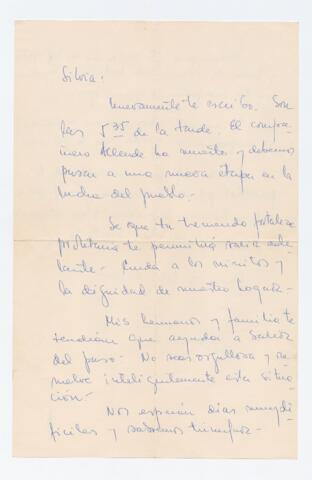 Silvia:
Nuevamente te escribo. Son
las 5 35 de la tarde. El compa-
ñero Allende ha muerto y debemos
pasar a una nueva etapa en la
lucha del pueblo.-
Se que tu tremenda fortaleza
proletaria te permitirá salir ade-
lante.- Cuida a los niñitos y
la dignidad de nuestro hogar.-
Mis hermanos y familia te
tendrán que ayudar a salir
del paso.- No seas orgullosa y re-
suelve inteligentemente esta situa-
ción.-
Nos esperan días muy di-
fíciles y sabremos triunfar.-